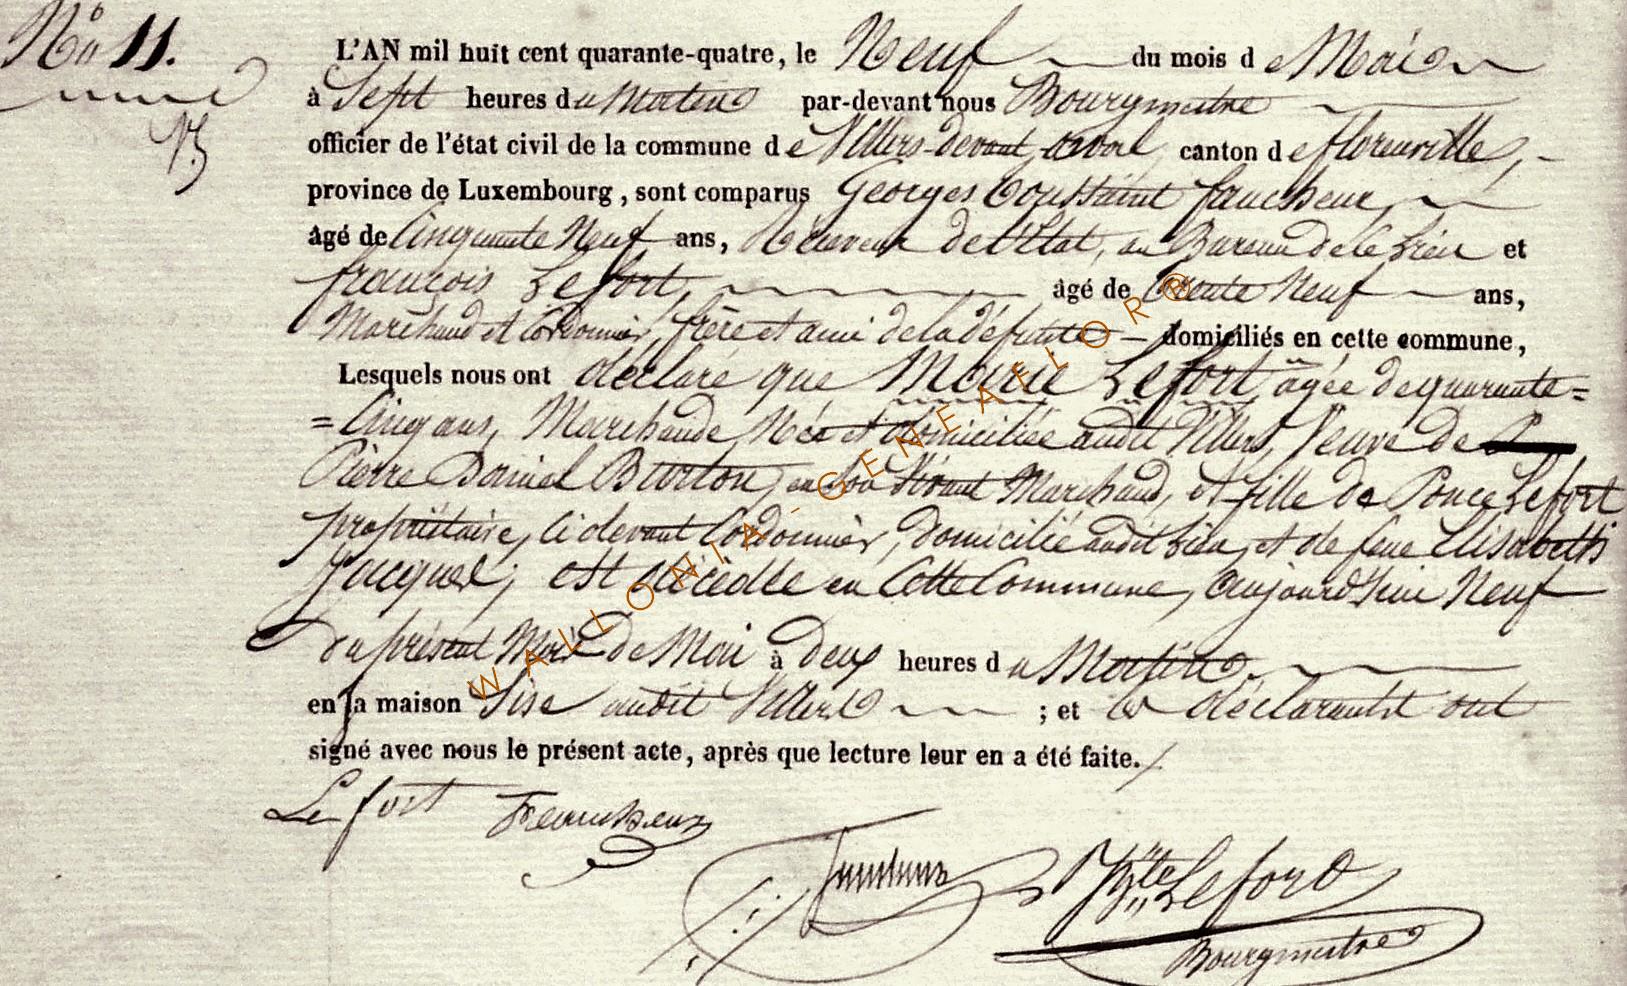 No 11.
L'AN mil huit cent quarante-quatre, le Neuf du mois de Mai
à Sept heures du Matin par-devant nous Bourgmestre
officier de l'état civil de la commune de Villers-devant-orval, canton de florenville,
province de Luxembourg, sont comparus Georges Toussaint faucheux,
âgé de Cinquante Neuf ans, Receveur de l'Etat, au Bureau de ce Lieu et
françois Lefort, âgé de trente Neuf ans,
Marchand et Cordonnier, frère et ami de la défunte domiciliés en cette commune,
Lesquels nous ont déclaré que Marie Lefort, âgée de quarante=
=Cinq ans, Marchande, Née et domiciliée audit Villers, Veuve de
Pierre Daniel Burton, en son vivant Marchand, et fille de Ponce Lefort
propriétaire, Ci devant Cordonnier, domicilié audit Lieu, et de feue Elisabeth
Jacquet; est décédée en Cette Commune, aujourd'hui Neuf
du présent Mois de Mai à Deux heures du Matin
en sa maison Sise audit Villers ; et les déclarants ont
signé avec nous le présent acte, après que lecture leur en a été faite.
Lefort faucheux
Jh Bte Lefort
Bourgmestre
WALLONIA - GENEALLOR®